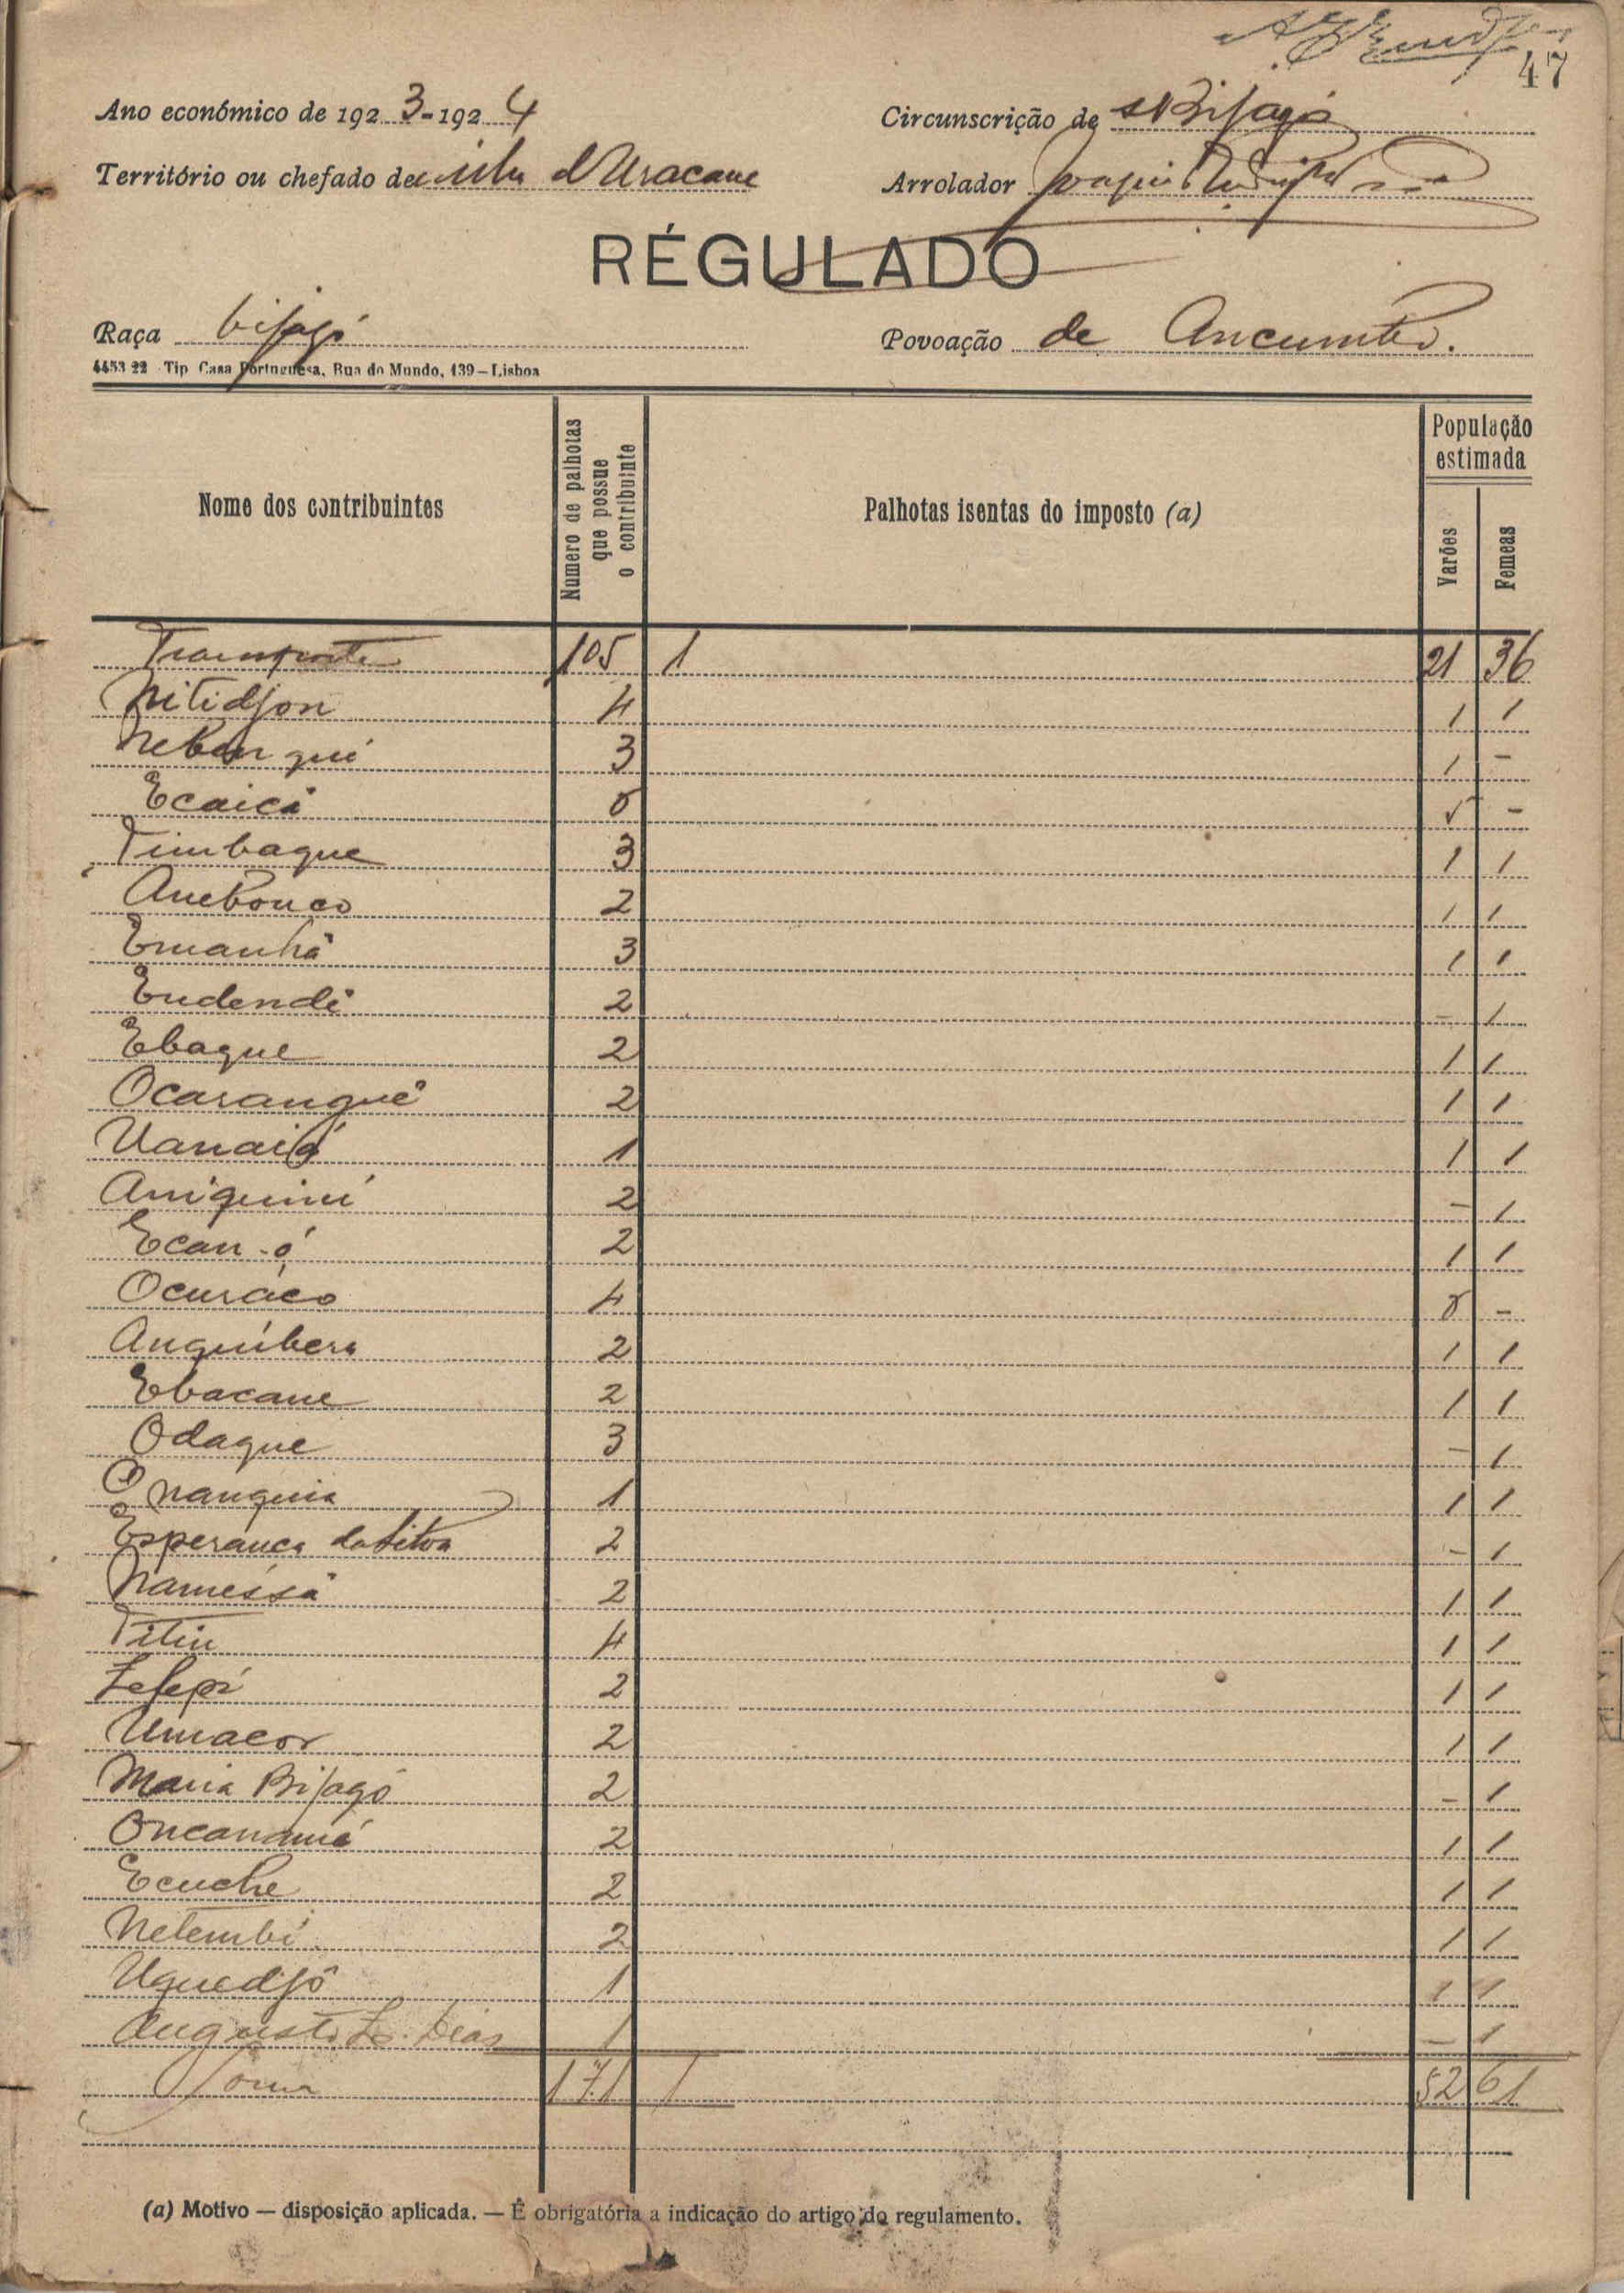 47
Ano económico de 1923-1924 Circunscrição de Bijagós
Território ou chefado de ilha d'Uracane Arrolador
RÉGULADO
Raça bijagó Povoação de Ancumbo.
4453 22 Tip Casa Portuguesa, Rua do Mundo, 139—Lisboa
Nome dos contribuintes Numero de palhotas que possue o contribuinte Palhotas isentas do imposto (a) População estimada
Varões Femeas
Transporte 105 1 21 36
Nitidjon 4 1 1
3 1 -
Ecaicá 5 -
Timbaque 3 1 1
2 1 1
Emanhá 3 1 1
Endendé 2 - 1
Ebaque 2 1 1
Ocarangué 2 1 1
1 1 1
Aniquiní 2 - 1
Ecan-ó 2 1 1
Ocuráco 4 -
Anguíbera 2 1 1
Ebacane 2 1 1
Odaque 3 - 1
1 1 1
Esperança da Silva 2 - 1
Naméssá 2 1 1
Titin 4 1 1
2 1 1
Umacor 2 1 1
Maria Bijagó 2 - 1
2 1 1
Ecuche 2 1 1
Netembi 2 1 1
Uquedjó 1 1 1
Augusto Dias 1 - 1
Soma 171 1 52 61
(a) Motivo — disposição aplicada. — É obrigatória a indicação do artigo do regulamento.